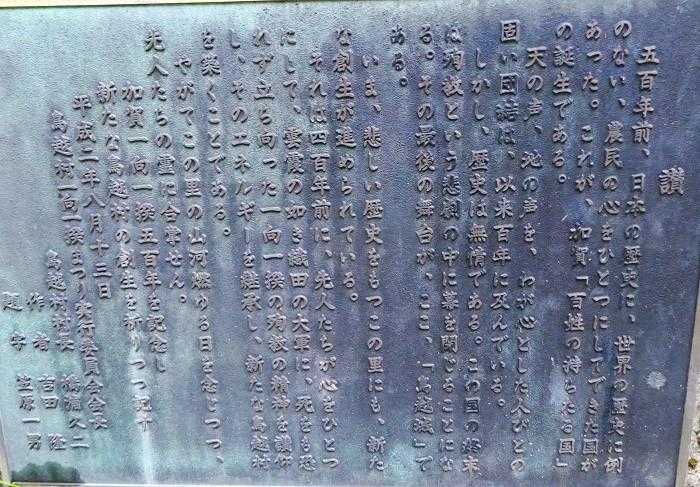 讃
五百年前、日本の歴史に、世界の歴史に例
のない、農民の心をひとつにしてできた国が
あった。これが、加賀「百姓の持ちたる国」
の誕生である。
天の声、地の声を、わが心とした人びとの
固い団結は、以来百年に及んでいる。
しかし、歴史は無情である。この国の終末
は殉教という悲劇の中に幕を閉じることにな
る。その最後の舞台が、ここ、「鳥越城」で
ある。
いま、悲しい歴史をもつこの里にも、新た
な創生が進められている。
それは四百年前に、先人たちが心をひとつ
にして、雲霞の如き織田の大軍に、死をも恐
れず立ち向った一向一揆の殉教の精神を讃仰
し、そのエネルギーを継承し、新たな鳥越村
を築くことである。
やがてこの里の山河燃ゆる日を念じつつ、
先人たちの霊に合掌せん。
加賀一向一揆五百年を記念し
新たな鳥越村の創生を祈りつつ記す
平成二年八月十三日
鳥越村一向一揆まつり実行委員会会長
鳥越村村長 橋浦久二
作者 吉田 隆
題字 笠原一男